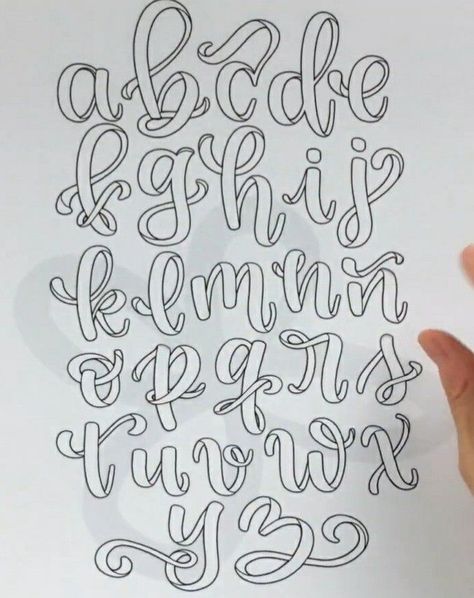 abcde
fghij
klmnñ
opqrs
tuvwx
yz